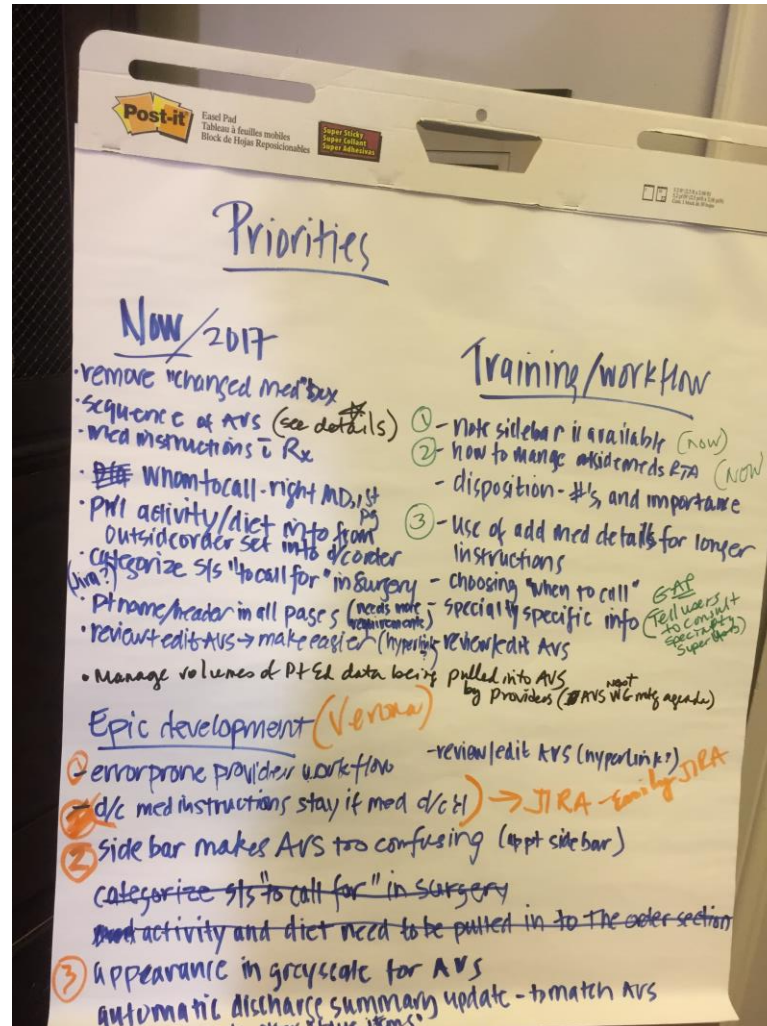 Post-it
Easel Pad
Tableau à feuilles mobiles
Block de Hojas Reposicionables
Super Sticky
Super Collant
Super Adhesivas
Priorities
Now/2017
• remove "changed med" box
• sequence of AVS (see details)
• med instructions c̄ Rx
• whom to call - right MD, 1st pg
• activity/diet info from
outside order set into d/c order
• categorize s/s "to call for" in surgery
(Jira?)
• pt name/header in all pages (needs more requirements)
• review + edit AVS → make easier (hyperlink?)
• Manage volumes of Pt Ed data being pulled into AVS
by providers (AVS WG mtg agenda)
next
Training/workflow
① - note sidebar is available (now)
② - how to mange meds RTA (NOW
- disposition - #'s, and importance
③ - use of add med details for longer
instructions
- choosing "when to call"
- specialty specific info (Tell users
to consult
specialty
super users)
review/edit AVS
Epic development (Verona)
① - error prone provider workflow
- review/edit AVS (hyperlink?)
- d/c med instructions stay if med d/c'd) → JIRA - Emily JIRA
② side bar makes AVS too confusing (appt side bar)
categorize s/s "to call for" in surgery
activity and diet need to be pulled in to the order section
③ appearance in greyscale for AVS
automatic discharge summary update - to match AVS
items"